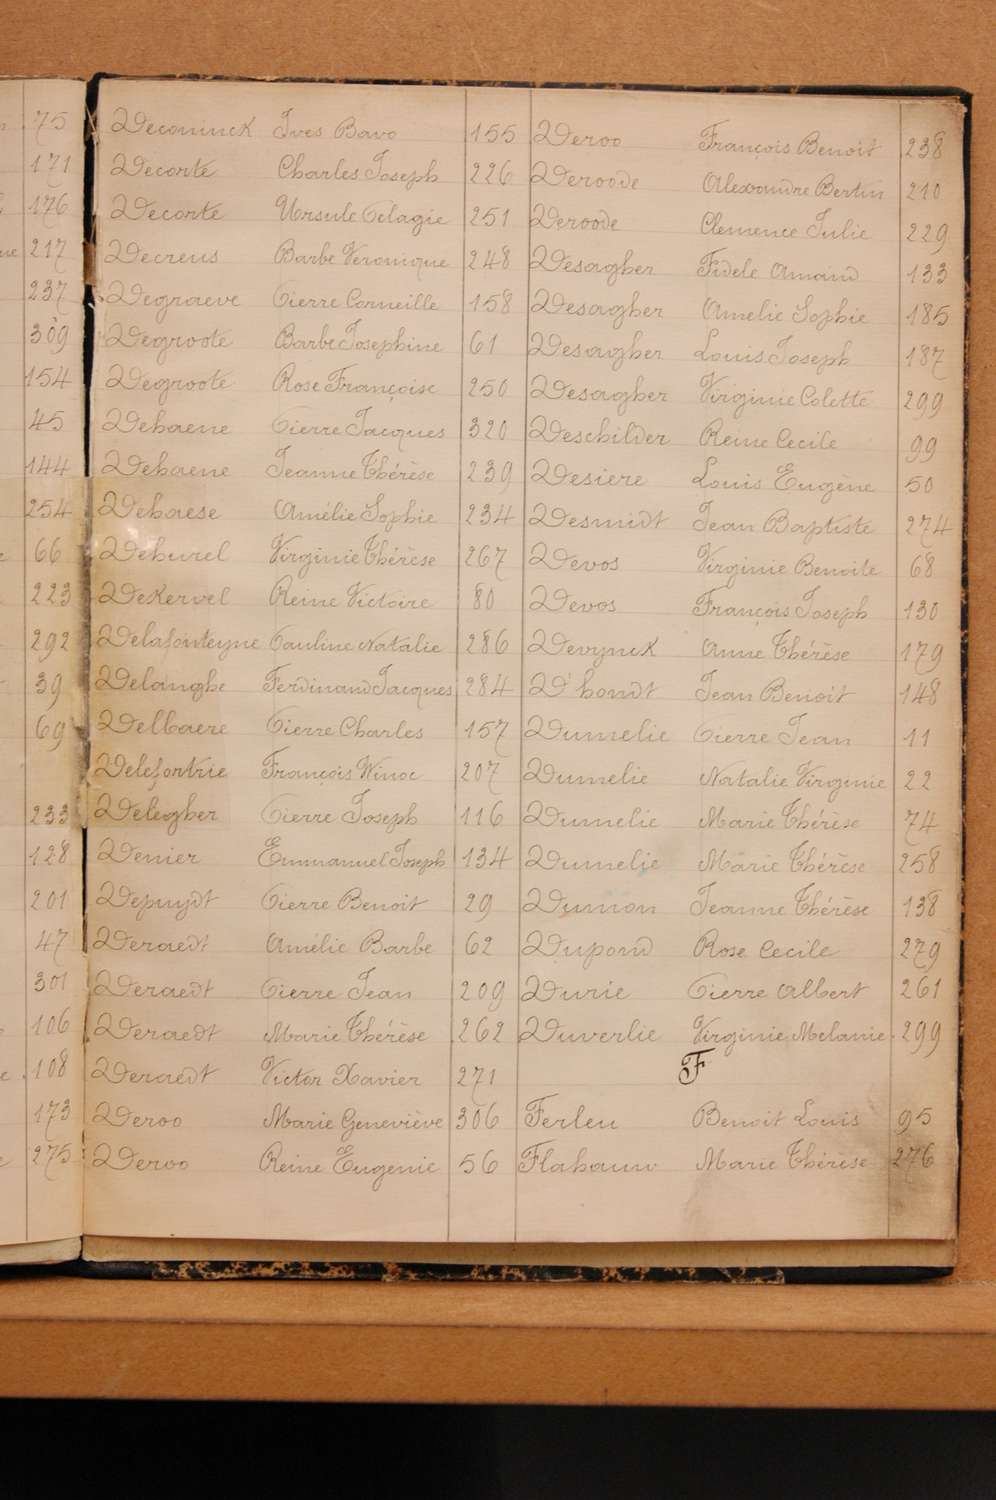 75
171
176
217
237
309
154
45
144
254
66
223
292
39
69
233
128
201
47
301
106
108
173
275
Deconinck Ives Bavo 155
Decorte Charles Joseph 226
Decorte Ursule Pélagie 251
Decreus Barbe Veronique 248
Degraeve Pierre Corneille 158
Degroote Barbe Josephine 61
Degroote Rose Françoise 250
Dehaene Pierre Jacques 320
Dehaene Jeanne Thérèse 239
Dehaese Amélie Sophie 234
Dehurel Virginie Thérèse 267
DeKervel Reine Victoire 80
Delafonteyne Pauline Natalie 286
Delanghe Ferdinand Jacques 284
Delbaere Pierre Charles 157
Delefortrie François Winoc 207
Delegher Pierre Joseph 116
Denier Emmanuel Joseph 134
Depuydt Pierre Benoit 29
Deraedt Amélie Barbe 62
Deraedt Pierre Jean 209
Deraedt Marie Thérèse 262
Deraedt Victor Xavier 271
Deroo Marie Geneviève 306
Deroo Reine Eugenie 56
Deroo François Benoit 238
Deroode Alexandre Bertin 210
Deroode Clemence Julie 229
Desagher Fidele Amand 133
Desagher Amelie Sophie 185
Desagher Louis Joseph 187
Desagher Virginie Colette 299
Deschilder Reine Cecile 99
Desiere Louis Eugène 50
Desmidt Jean Baptiste 274
Devos Virginie Benoite 68
Devos François Joseph 130
Devynck Anne Thérèse 179
D'hondt Jean Benoit 148
Dumelie Pierre Jean 11
Dumelie Natalie Virginie 22
Dumelie Marie Thérèse 74
Dumelie Marie Thérèse 258
Dumon Jeanne Thérèse 138
Dupond Rose Cecile 279
Durie Pierre Albert 261
Duverlie Virginie Melanie 299
F
Ferleu Benoit Louis 95
Flahauw Marie Thérèse 276